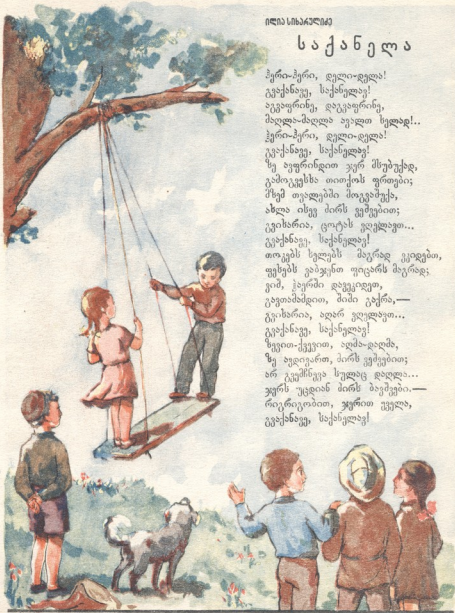 ილია სიხარულიძე
საქანელა
ჰერი-ჰერი, დელი-დელა!
გვაქანავე, საქანელავ!
აგვაფრინე, დაგვაფრინე,
მაღლა-მაღლა ავალთ სულად!..
ჰერი-ჰერი, დელი-დელა!
გვაქანავე, საქანელავ!
ზე ავფრინდით ჯერ მსუბუქად,
გამოგვესხა თითქოს ფრთები;
მზემ თვალებში მოგვაშუქა,
ახლა ისევ ძირს ვეშვებით;
გვიხარია, ცოტას ვღელავთ...
გვაქანავე, საქანელავ!
თოკებს ხელებს მაგრად ვკიდებთ,
ფეხებს ვაბჯენთ ფიცარს მაგრად;
ვიშ, ჰაერში დავეკიდეთ,
გავთამამდით, შიში გაქრა,—
გვიხარია, აღარ ვღელავთ...
გვაქანავე, საქანელავ!
ზევით-ქვევით, აღმა-დაღმა,
ზე ავდივართ, ძირს ვეშვებით;
არ გვემჩნევა სულაც დაღლა...
ჯერს უცდიან ძირს ბავშვები.—
რიგრიგობით, ჯერით ყველა,
გვაქანავე, საქანელავ!